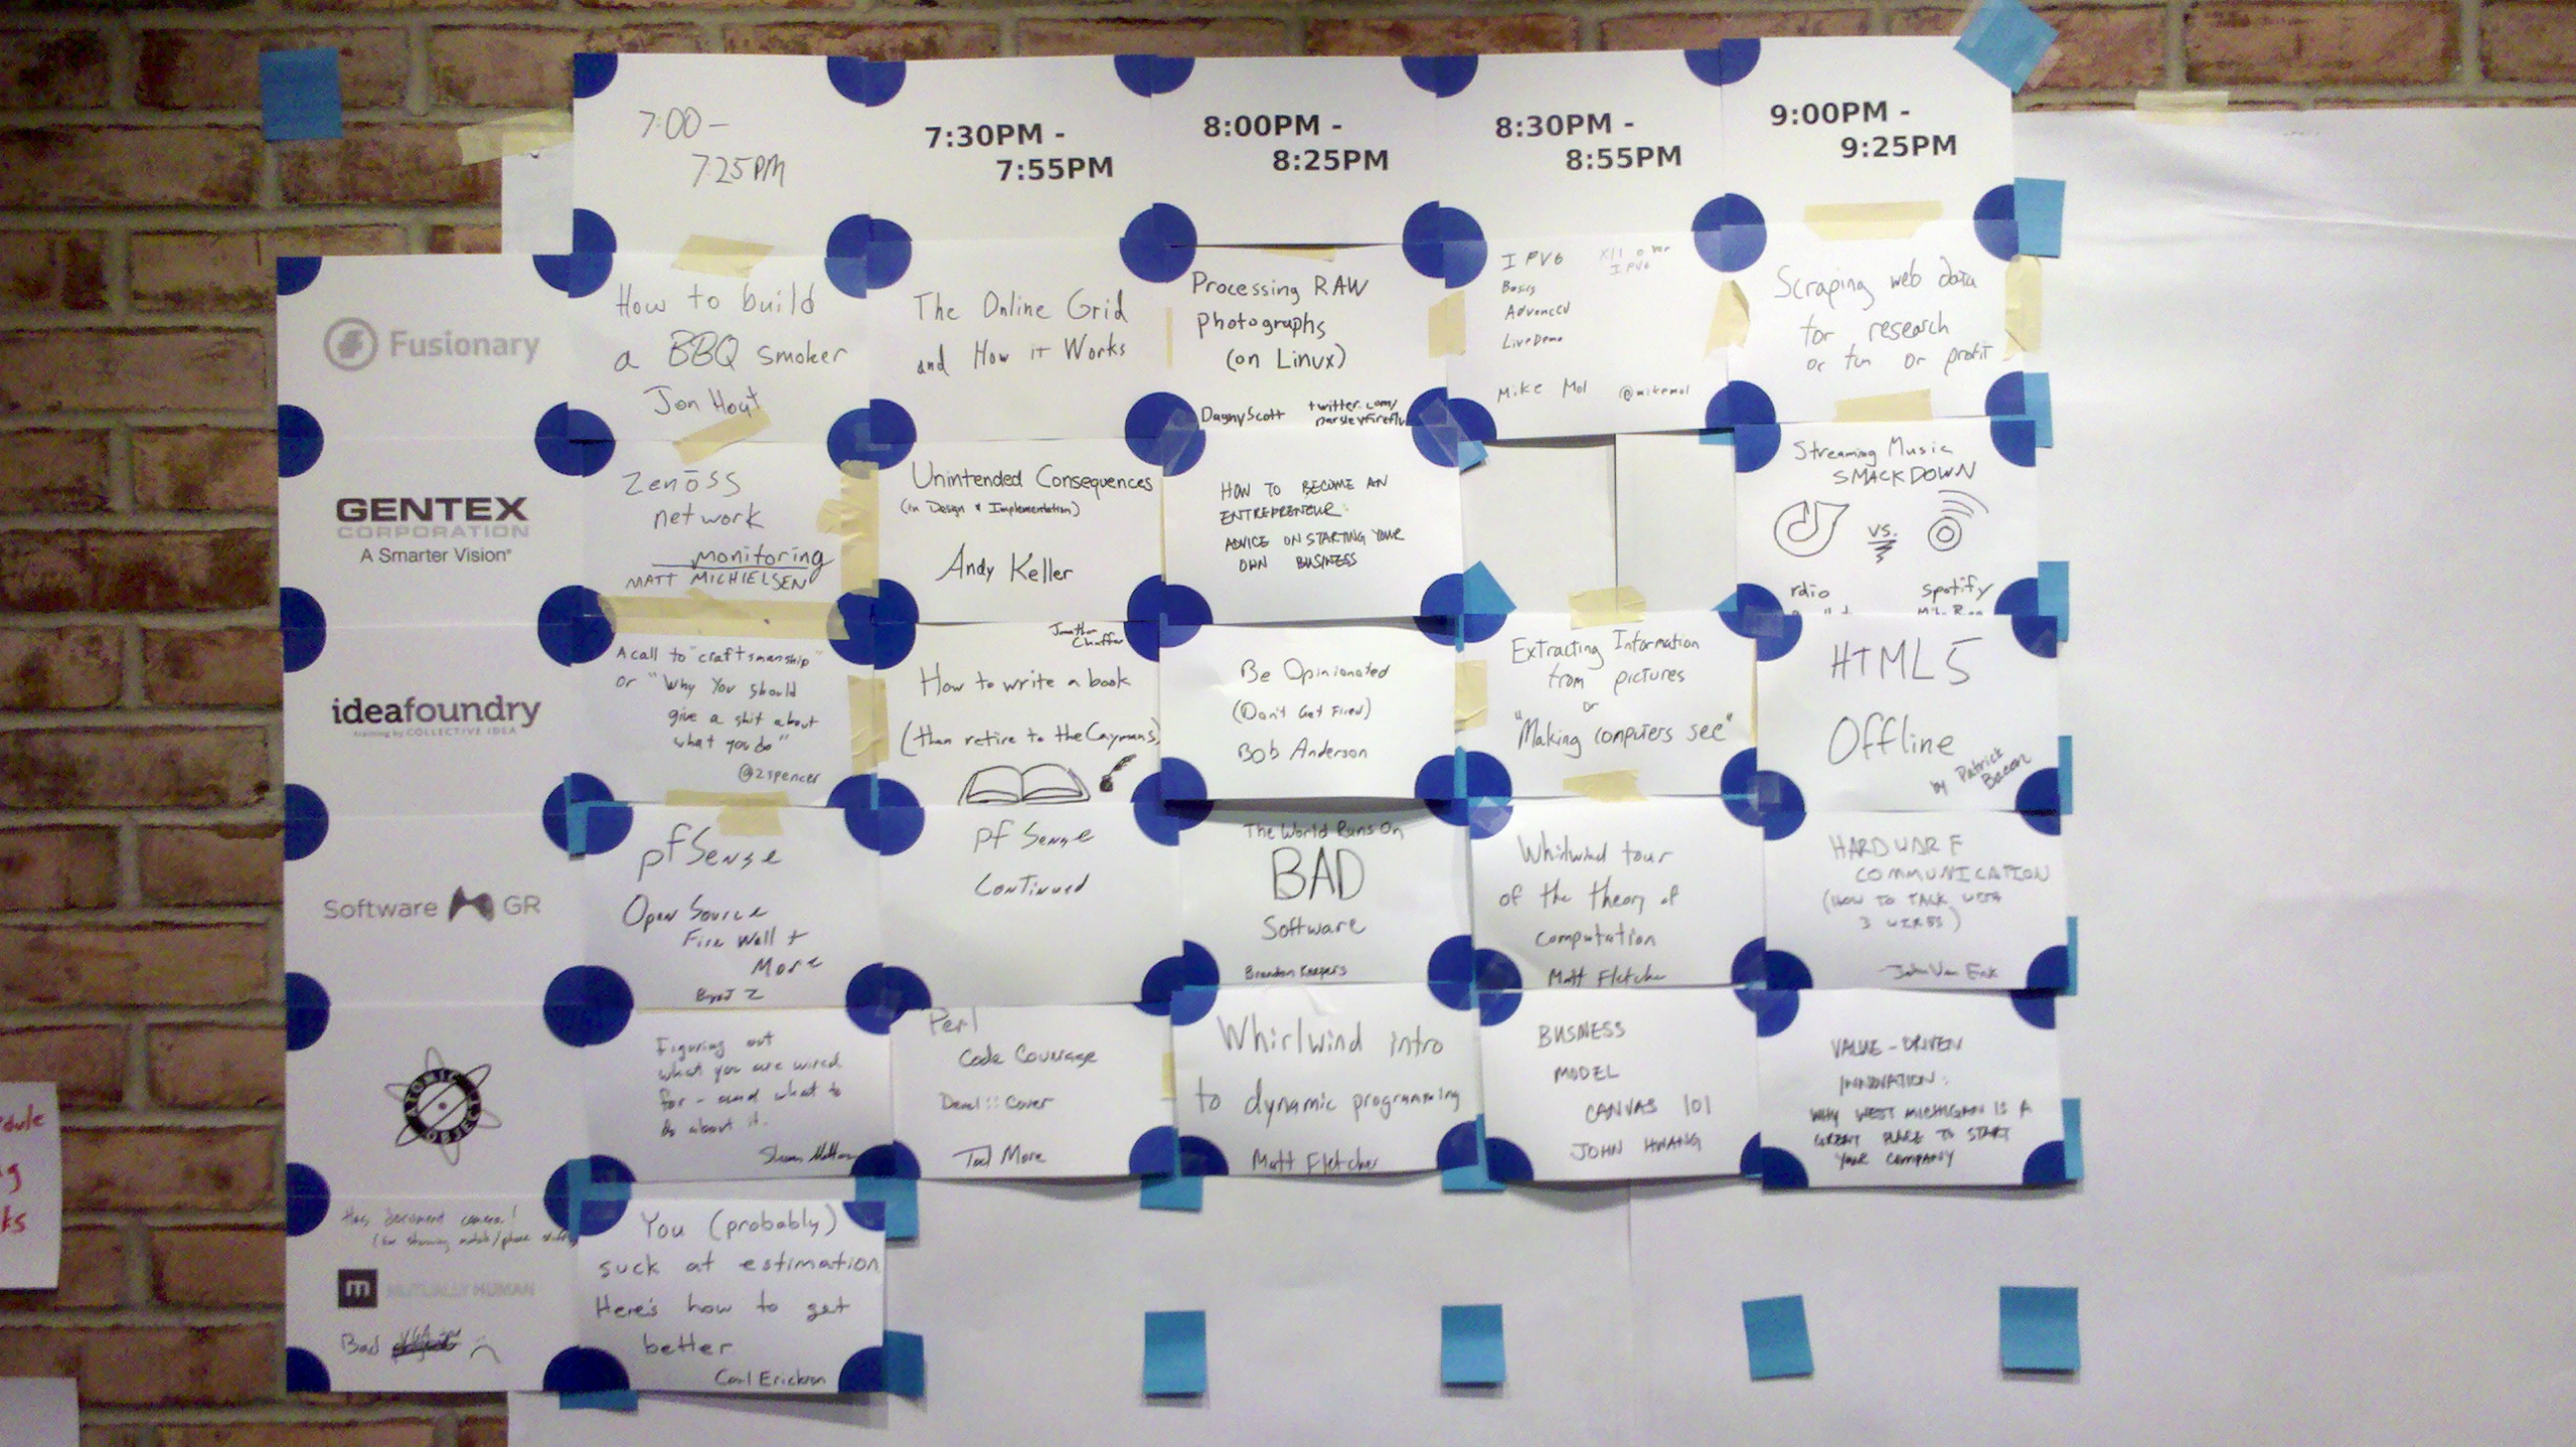 7:00-
7:25PM
7:30PM -
7:55PM
8:00PM -
8:25PM
8:30PM -
8:55PM
9:00PM -
9:25PM
Fusionary
How to build
a BBQ smoker
Jon Hoyt
The Online Grid
and How it Works
Processing RAW
Photographs
(on Linux)
Dagny Scott
twitter.com/
parsleyfirefly
IPV6
Basics
Advanced
Live Demo
X11 over
IPV6
Mike Mol @mikemol
Scraping web data
for research
or fun or profit
GENTEX
CORPORATION
A Smarter Vision®
Zenoss
network
monitoring
MATT MICHIELSEN
Unintended Consequences
(in Design & Implementation)
Andy Keller
HOW TO BECOME AN
ENTREPRENEUR:
ADVICE ON STARTING YOUR
OWN BUSINESS
Streaming Music
SMACKDOWN
vs.
rdio
spotify
ideafoundry
training by COLLECTIVE IDEA
A call to "craftsmanship"
or "Why You should
give a shit about
what you do"
@zspencer
Jonathan
Chaffer
How to write a book
(then retire to the Caymans)
Be Opinionated
(Don't Get Fired)
Bob Anderson
Extracting Information
from pictures
or
"Making computers see"
HTML5
Offline
by Patrick
Bacon
Software GR
pfSense
Open Source
Fire Wall +
More
pf Sense
Continued
The World Runs On
BAD
Software
Brandon Keepers
Whirlwind tour
of the theory of
computation
Matt Fletcher
HARDWARE
COMMUNICATION
(HOW TO TALK WITH
3 WIRES)
John Van Enk
ATOMIC
OBJECT
Figuring out
what you are wired
for - and what to
do about it.
Perl
Code Coverage
Devel::Cover
Whirlwind intro
to dynamic programming
Matt Fletcher
BUSINESS
MODEL
CANVAS 101
JOHN HWANG
VALUE-DRIVEN
INNOVATION:
WHY WEST MICHIGAN IS A
GREAT PLACE TO START
YOUR COMPANY
Has document camera!
m MUTUALLY HUMAN
Bad
You (probably)
suck at estimation
Here's how to get
better
Carl Erickson